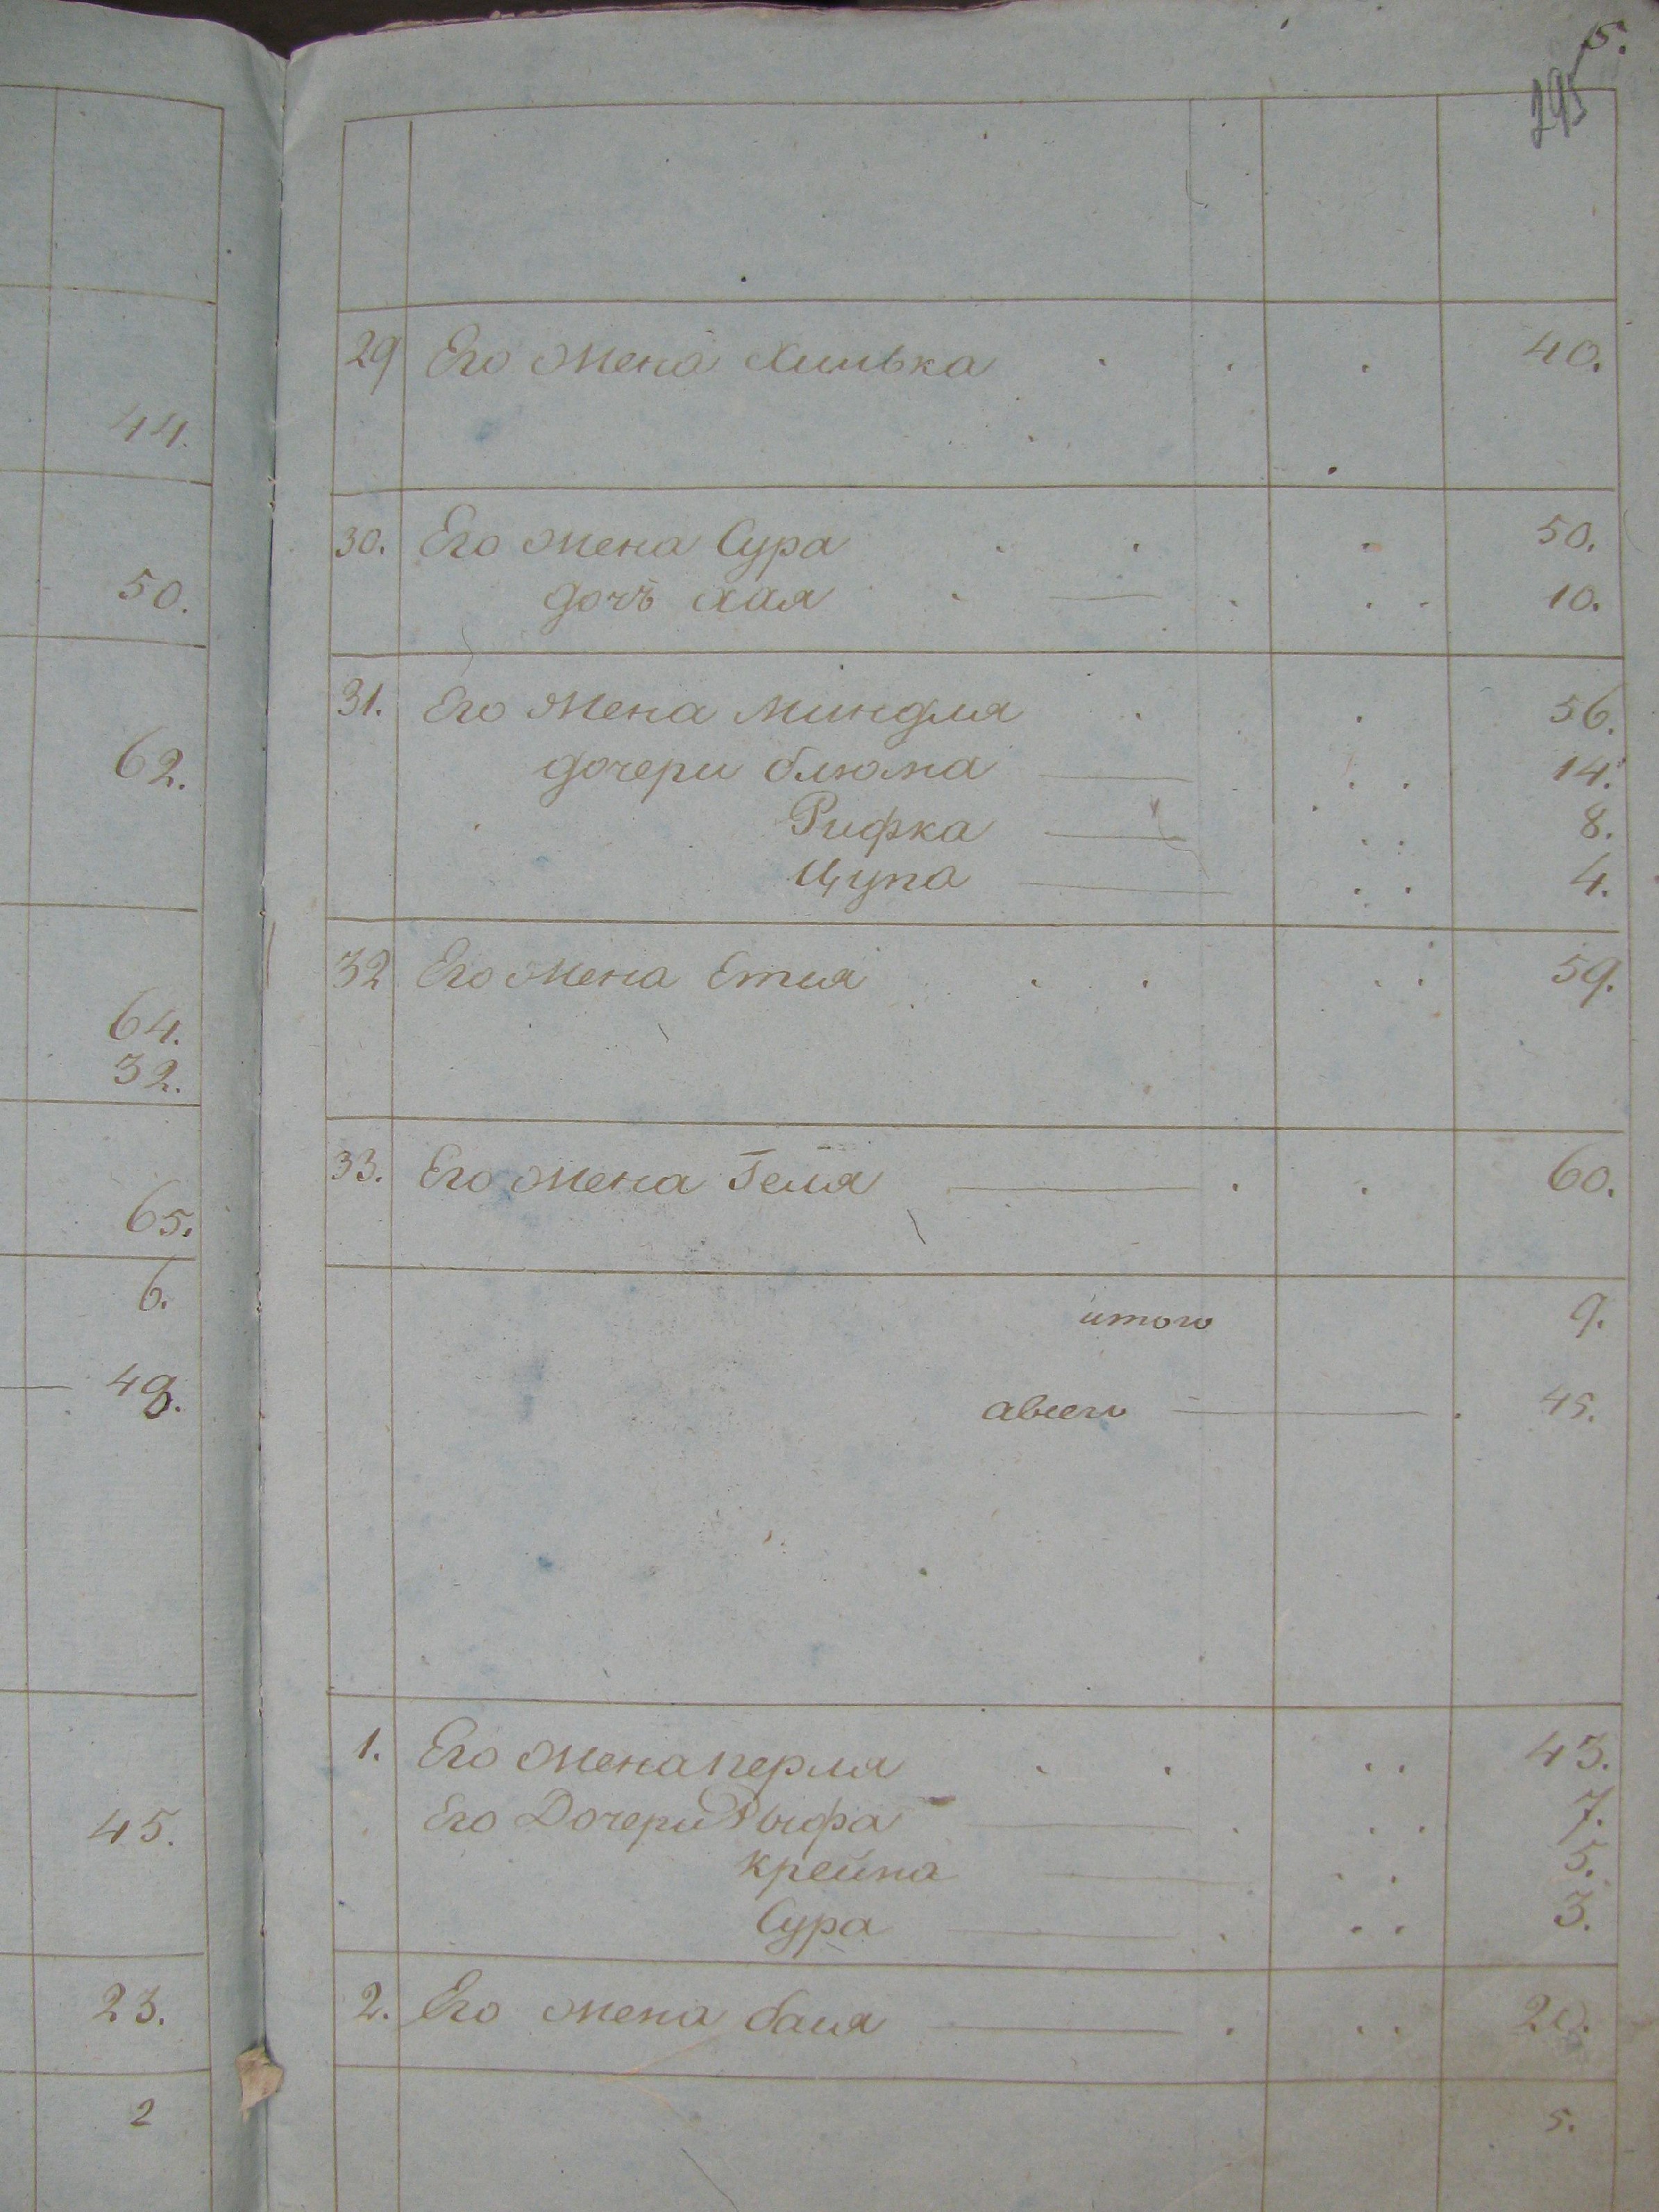 5.
295
44.
50.
62.
64.
32.
65.
6.
48.
45.
23.
2
29 Его жена Хилька 40.
30. Его жена Сура 50.
дочь хая 10.
31. Его жена Миндля 56.
дочери блюма 14.
Рифка 8.
Цупа 4.
32 Его жена Етля 59.
33. Его жена Геля 60.
итого 9.
авсего 45.
1. Его жена перля 43.
Его Дочери Рыфа 7.
крейна 5.
Сура 3.
2. Его жена бася 20.
5.